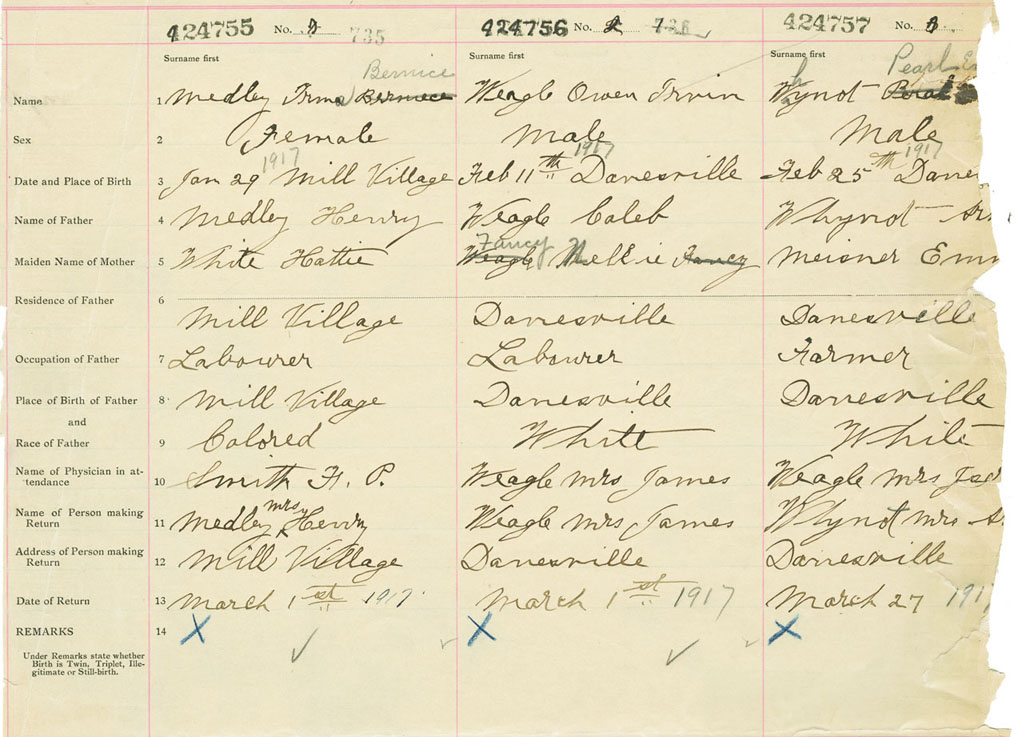 424755 No. 735 424756 No. 2 424757 No.
Surname first Surname first Surname first
Bernice Pearl
Name 1 Medley Irma Bernice Weagle Owen Irvin Whynot
Sex 2 Female Male Male
1917 1917 1917
Date and Place of Birth 3 Jan 29 Mill Village Feb 11th Danesville Feb 25th Danes
Name of Father 4 Medley Henry Weagle Caleb Whynot
Fancy
Maiden Name of Mother 5 White Hattie Weagle Nellie Fancy Meisner Em
Residence of Father 6
Mill Village Danesville Danesville
Occupation of Father 7 Labourer Labourer Farmer
Place of Birth of Father 8 Mill Village Danesville Danesville
and
Race of Father 9 Colored White White
Name of Physician in at-
tendance 10 Smith H. P. Weagle Mrs James Weagle Mrs
mrs
Name of Person making
Return 11 Medley Henry Weagle Mrs James Whynot Mrs
Address of Person making
Return 12 Mill Village Danesville Danesville
Date of Return 13 March 1st 1917 March 1st 1917 March 27 191
REMARKS 14 X X X
Under Remarks state whether
Birth is Twin, Triplet, Ille-
gitimate or Still-birth.